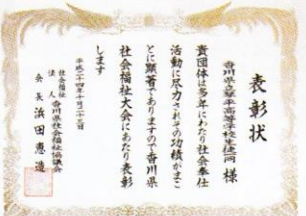 表彰状
香川県立琴平高等学校生徒一同 様
貴団体は多年にわたり社会奉仕
活動に尽力されその功績がまこ
とに顕著でありますので香川県
社会福祉大会にあたり表彰
します
平成二十四年十月二十三日
社会福祉法人 香川県社会福祉協議会
会長 浜田恵造